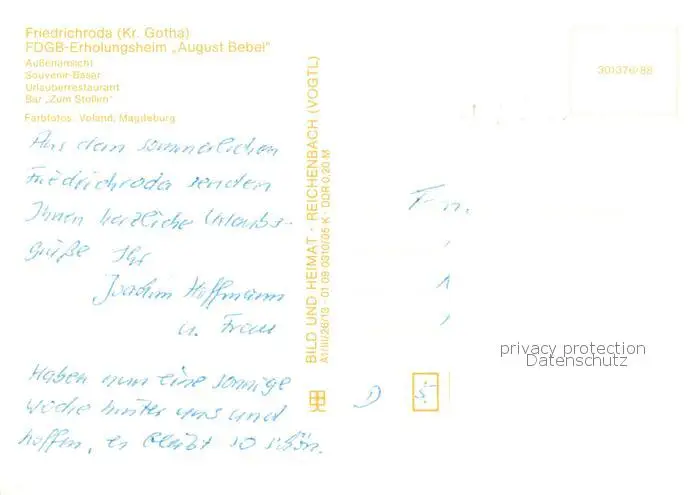 Friedrichroda (Kr. Gotha)
FDGB-Erholungsheim „August Bebel"
Außenansicht
Souvenir-Basar
Urlauberrestaurant
Bar „Zum Stollen"
Farbfotos: Voland, Magdeburg
Aus dem sommerlichen
Friedrichroda senden
Ihnen herzliche Urlaubs-
grüße Ihr
Joachim Hoffmann
u. Frau
Haben nun eine sonnige
Woche hinter uns und
hoffen, es bleibt so schön.
BILD UND HEIMAT · REICHENBACH (VOGTL)
A1/III/26/13 · 01 09 0310/05 K · DDR 0,20 M
301376/88
privacy protection
Datenschutz